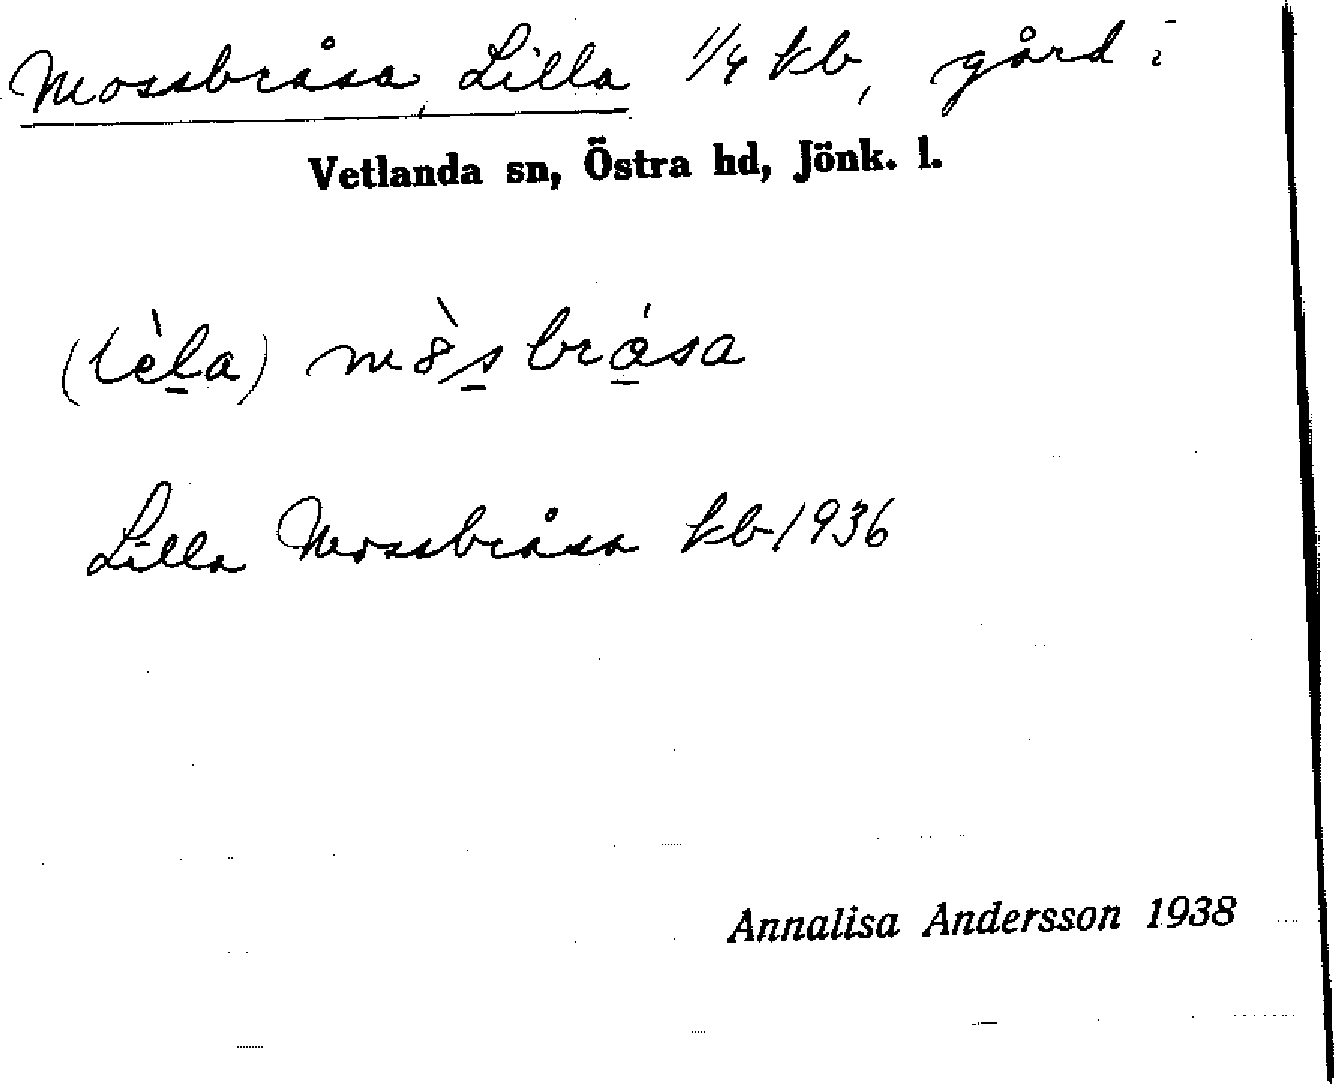 Mossbråsa, Lilla 1/4 kb, gård i
Vetlanda sn, Östra hd, Jönk. l.
(lèl̲a) m8̀s̲br̲ása
Lilla Mossbråsa kb 1936
Annalisa Andersson 1938